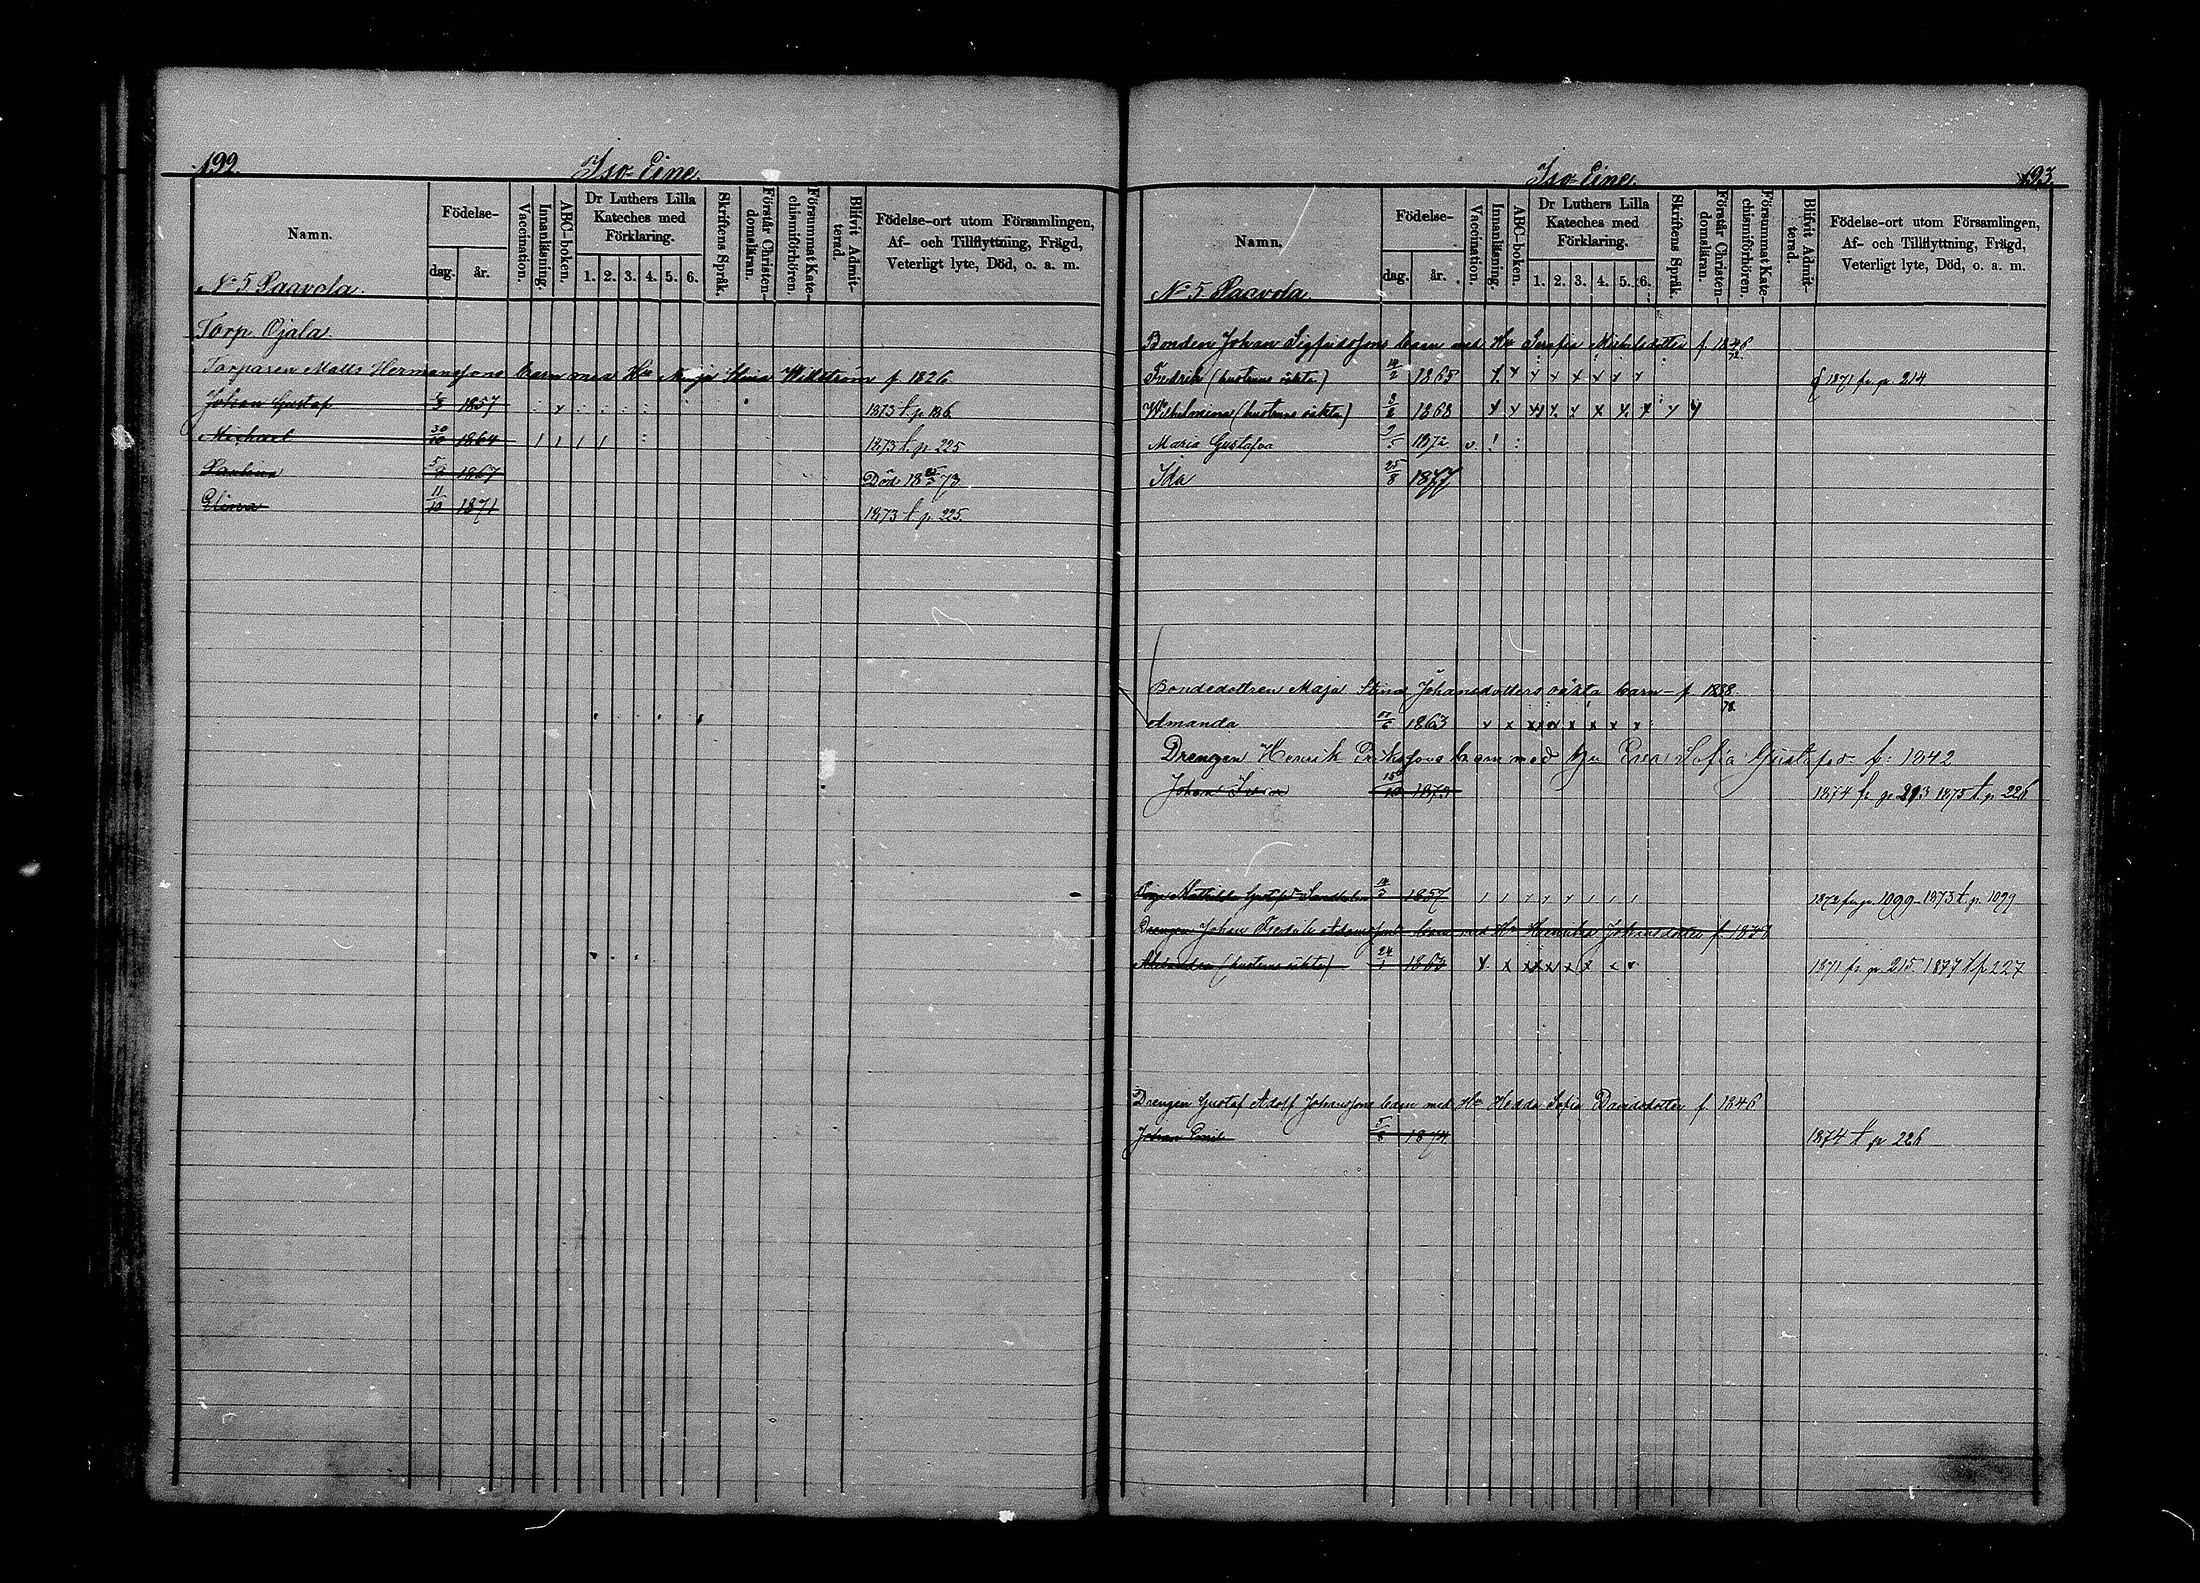 192.
Iso-Eine.
Namn.
Födelse-
dag.
år.
Vaccination.
Innanläsning.
ABC-boken.
Dr Luthers Lilla
Kateches med
Förklaring.
1. 2. 3. 4. 5. 6.
Skriftens Språk.
Förstår Christen-
domsläran.
Försummat Kate-
chismiförhören.
Blifvit Admit-
terad.
Födelse-ort utom Församlingen,
Af- och Tillflyttning, Frägd,
Veterligt lyte, Död, o. a. m.
No 5 Paavola.
Torp Ojala.
Torparen Matts Hermanssons barn med Hu Maja Stina Wikström f 1826
Johan Gustaf 1857 1873 t. p. 186
Michael 30/10 1864 1873 t. p. 225
Paulina 1867 Död 18 73
Elina 11/10 1871 1873 t. p. 225.
Iso-Eine.
193.
Namn.
Födelse-
dag.
år.
Vaccination.
Innanläsning.
ABC-boken.
Dr Luthers Lilla
Kateches med
Förklaring.
1. 2. 3. 4. 5. 6.
Skriftens Språk.
Förstår Christen-
domsläran.
Försummat Kate-
chismiförhören.
Blifvit Admit-
terad.
Födelse-ort utom Församlingen,
Af- och Tillflyttning, Frägd,
Veterligt lyte, Död, o. a. m.
No 5 Paavola.
Bonden Johan Sigfridssons barn med Hu Serafia Michelsdotter f 1846
Fredrik (hustruns oäkta) 1865 1871 fr. p. 214
Wilhelmina (hustruns oäkta) 1868
Maria Gustafva 1872
Ida 25/8 1877
Bondedottren Maja Stina Johansdotters oäkta barn - f 1838.
Amanda 1863
Drengen Henrik Erikssons barn med Hu Eva Sofia Gustafsd f: 1842
Johan 1873 1874 fr. p. 213 1875 t. p. 226
Mathilda Gustafsd 1857 1872 fr. p. 1099 1873 t. p. 1099
Drengen Johan Fredrik Adamssons barn med Hu Henrika Johansdotter f.
Alexandra (hustruns oäkta) 24/1 1863 1871 fr. p. 215 1877 t. p. 227
Drengen Gustaf Adolf Johanssons barn med Hu Hedda Sofia Davidsdotter f 1846
Johan Emil 5/8 1874 1874 t. p. 226